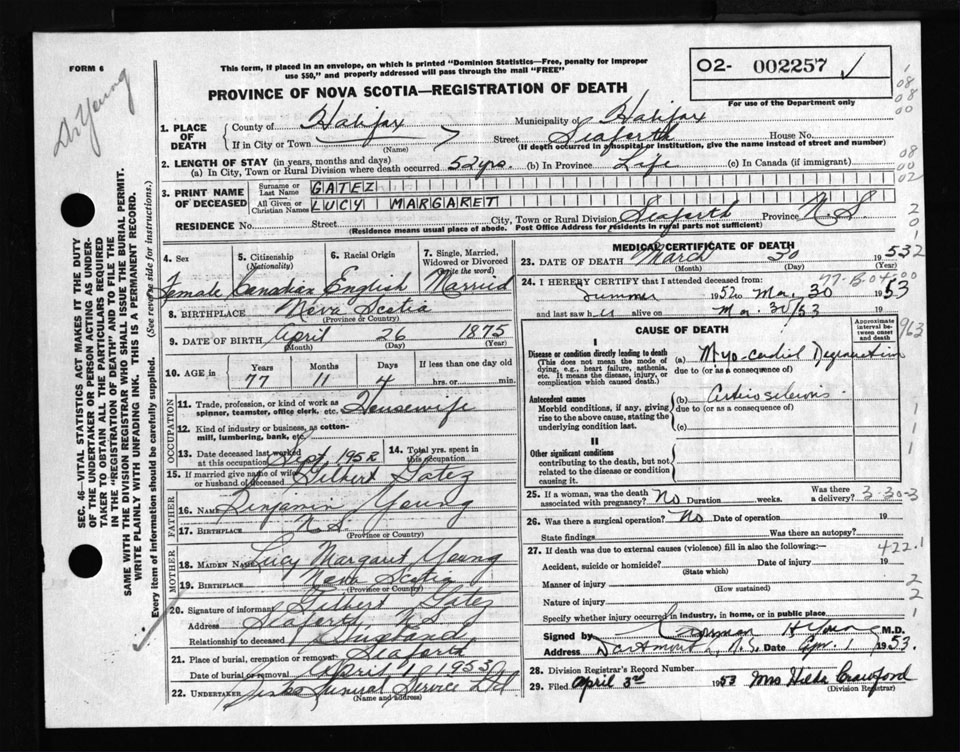 FORM 6
Dr Young
This form, if placed in an envelope, on which is printed "Dominion Statistics—Free, penalty for improper
use $50," and properly addressed will pass through the mail "FREE"
O2- 002257 ✓
For use of the Department only
PROVINCE OF NOVA SCOTIA—REGISTRATION OF DEATH
1. PLACE OF DEATH
County of Halifax Municipality of Halifax
If in City or Town (Name) Street Seaforth House No.
(If death occurred in a hospital or institution, give the name instead of street and number)
2. LENGTH OF STAY (in years, months and days)
(a) In City, Town or Rural Division where death occurred 52 yrs. (b) In Province Life (c) In Canada (if immigrant)
3. PRINT NAME OF DECEASED
Surname or Last Name GATEZ
All Given or Christian Names LUCY MARGARET
RESIDENCE No. Street City, Town or Rural Division Seaforth Province N S
(Residence means usual place of abode. Post Office Address for residents in rural parts not sufficient)
4. Sex Female
5. Citizenship (Nationality) Canadian
6. Racial Origin English
7. Single, Married, Widowed or Divorced (Write the word) Married
8. BIRTHPLACE Nova Scotia
(Province or Country)
9. DATE OF BIRTH April 26 1875
(Month) (Day) (Year)
10. AGE Years 77 Months 11 Days 4 If less than one day old hrs. or min.
OCCUPATION
11. Trade, profession, or kind of work as spinner, teamster, office clerk, etc. Housewife
12. Kind of industry or business, as cotton-mill, lumbering, bank, etc.
13. Date deceased last worked at this occupation Sept 1952
14. Total yrs. spent in this occupation
15. If married give name of wife or husband of deceased Gilbert Gatez
FATHER
16. NAME Benjamin Young
17. BIRTHPLACE N S
(Province or Country)
MOTHER
18. MAIDEN NAME Lucy Margaret Young
19. BIRTHPLACE Nova Scotia
(Province or Country)
20. Signature of informant Gilbert Gatez
Address Seaforth N S
Relationship to deceased Husband
21. Place of burial, cremation or removal Seaforth
Date of burial or removal April 1 1953
22. UNDERTAKER Funeral Service Ltd
(Name and address)
MEDICAL CERTIFICATE OF DEATH
23. DATE OF DEATH March 30 1953
(Month) (Day) (Year)
24. I HEREBY CERTIFY that I attended deceased from:
Summer 1952 to Mar. 30 1953
and last saw her alive on Mar. 30/53 19
CAUSE OF DEATH
Approximate interval between onset and death
I
Disease or condition directly leading to death
(This does not mean the mode of dying, e.g., heart failure, asthenia, etc. It means the disease, injury, or complication which caused death.)
(a) Myo-cardial Degeneration
due to (or as a consequence of)
Antecedent causes
Morbid conditions, if any, giving rise to the above cause, stating the underlying condition last.
(b)
due to (or as a consequence of)
(c)
II
Other significant conditions
contributing to the death, but not related to the disease or condition causing it.
25. If a woman, was the death associated with pregnancy? No Duration weeks. Was there a delivery?
3-30-3
26. Was there a surgical operation? No Date of operation 19
State findings Was there an autopsy?
27. If death was due to external causes (violence) fill in also the following:—
422.1
Accident, suicide or homicide? Date of injury 19
(State which)
Manner of injury
(How sustained)
Nature of injury
Specify whether injury occurred in industry, in home, or in public place
Signed by H Young M.D.
Address Dartmouth, N.S. Date Apr. 1 1953.
28. Division Registrar's Record Number
29. Filed April 3rd 1953 Mrs Hilda Crawford
(Division Registrar)
SEC. 46—VITAL STATISTICS ACT MAKES IT THE DUTY
OF THE UNDERTAKER OR PERSON ACTING AS UNDER-
TAKER TO OBTAIN ALL THE PARTICULARS REQUIRED
IN THE "REGISTRATION OF DEATH" AND TO FILE THE
SAME WITH THE DIVISION REGISTRAR WHO SHALL ISSUE THE BURIAL PERMIT.
WRITE PLAINLY WITH UNFADING INK. THIS IS A PERMANENT RECORD.
Every item of information should be carefully supplied. (See reverse side for instructions.)